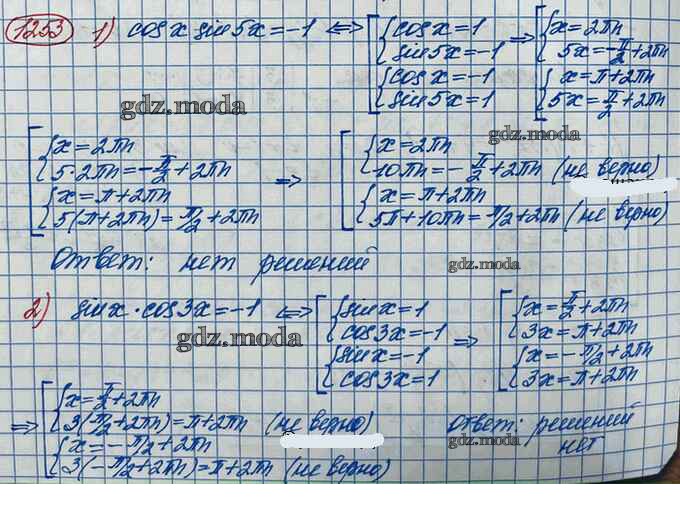 1253 1) cos x sin 5x = -1 ⟺ [ { cos x = 1 sin 5x = -1 { cos x = -1 sin 5x = 1 ⟹ [ { x = 2πn 5x = -π/2 + 2πn { x = π + 2πn 5x = π/2 + 2πn
gdz.moda
gdz.moda
[ { x = 2πn 5·2πn = -π/2 + 2πn { x = π + 2πn 5(π + 2πn) = π/2 + 2πn ⟹ [ { x = 2πn 10πn = -π/2 + 2πn (не верно) { x = π + 2πn 5π + 10πn = π/2 + 2πn (не верно)
Ответ: нет решений
gdz.moda
2) sin x · cos 3x = -1 ⟺ [ { sin x = 1 cos 3x = -1 { sin x = -1 cos 3x = 1 ⟹ [ { x = π/2 + 2πn 3x = π + 2πn { x = -π/2 + 2πn 3x = π + 2πn
gdz.moda
⟹ [ { x = π/2 + 2πn 3(π/2 + 2πn) = π + 2πn (не верно) { x = -π/2 + 2πn 3(-π/2 + 2πn) = π + 2πn (не верно)
Ответ: решений
нет
gdz.moda